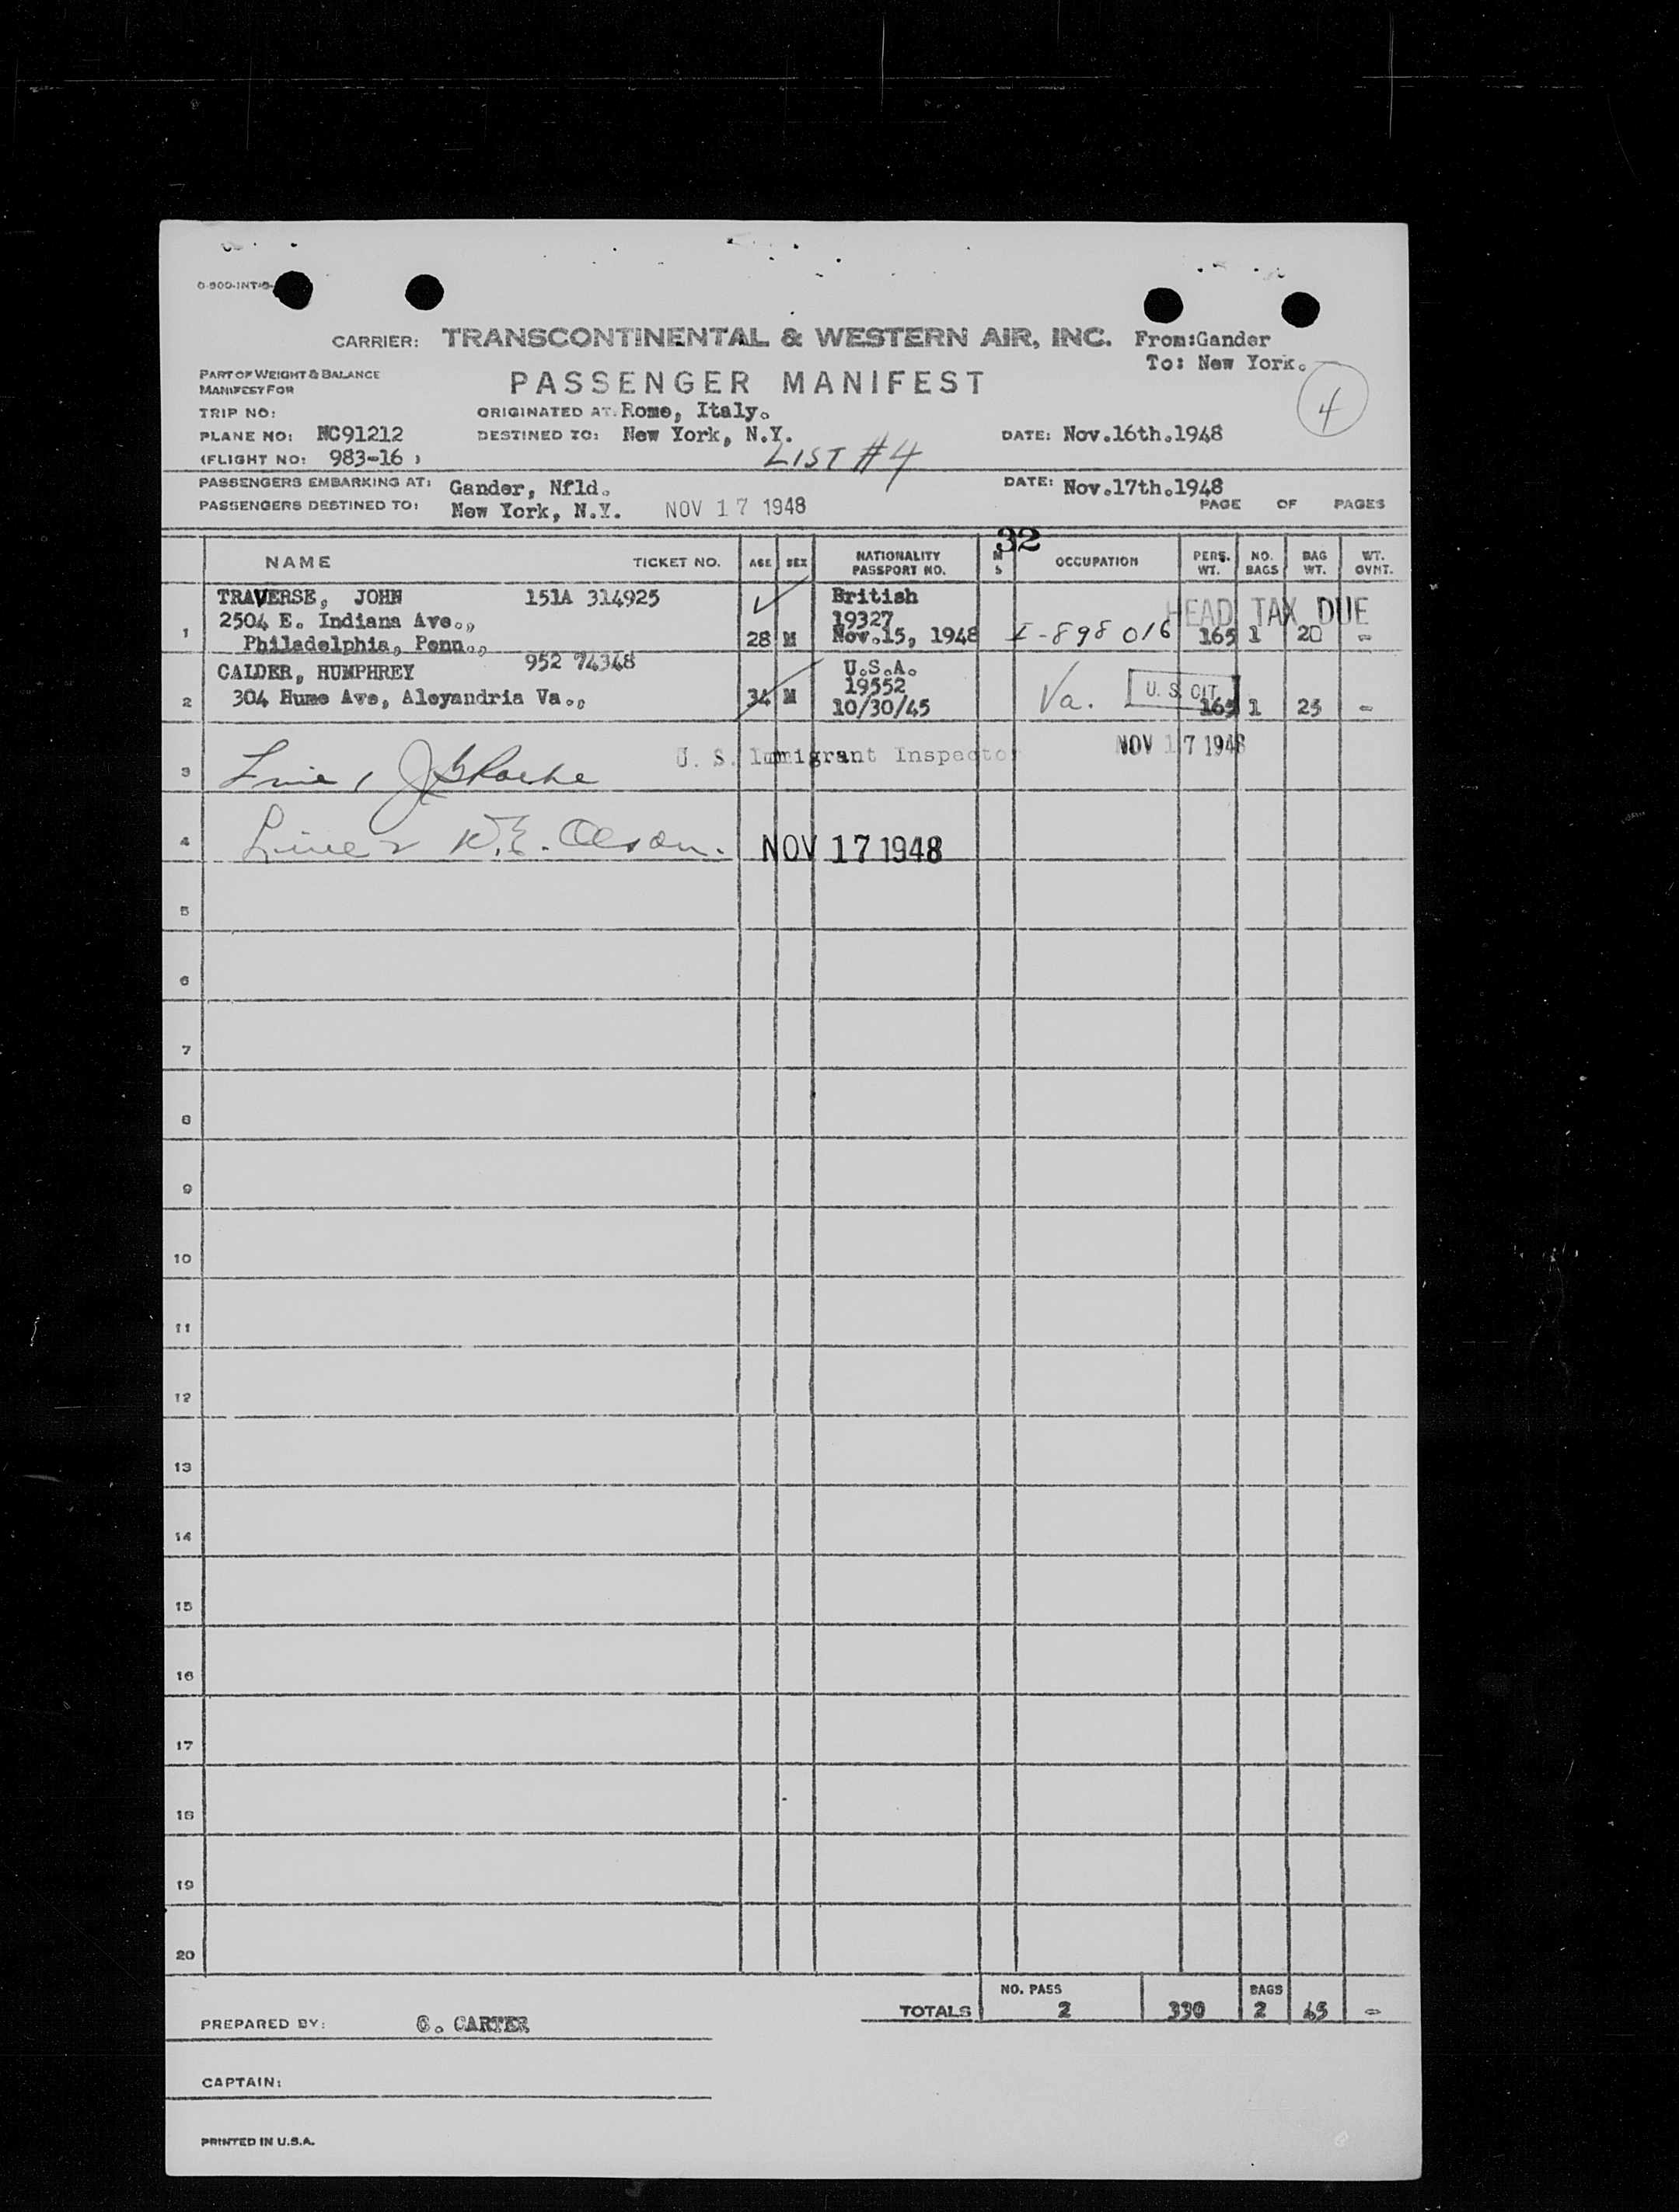 CARRIER: TRANSCONTINENTAL & WESTERN AIR, INC. From:Gander
To: New York.
PART OF WEIGHT & BALANCE
MANIFEST FOR
PASSENGER MANIFEST
4
TRIP NO:
ORIGINATED AT: Rome, Italy.
PLANE NO: NC91212
DESTINED TO: New York, N.Y.
DATE: Nov.16th.1948
(FLIGHT NO: 983-16 )
LIST #4
PASSENGERS EMBARKING AT: Gander, Nfld.
DATE: Nov.17th.1948
PASSENGERS DESTINED TO: New York, N.Y. NOV 17 1948
PAGE OF PAGES
32
NAME TICKET NO. AGE SEX NATIONALITY PASSPORT NO. M S OCCUPATION PERS. WT. NO. BAGS BAG WT. WT. OVNT.
TRAVERSE, JOHN 151A 314925 British HEAD TAX DUE
2504 E. Indiana Ave., 19327
1 Philadelphia, Penn., 28 M Nov.15, 1948 I-898016 165 1 20 -
CALDER, HUMPHREY 952 74348 U.S.A.
19552 U. S. CIT.
2 304 Hume Ave, Aleyandria Va., 34 M 10/30/45 Va. 165 1 25 -
U. S. Immigrant Inspector NOV 17 1948
3 Line 1
4 Line 2 W.E. Olson. NOV 17 1948
5
6
7
8
9
10
11
12
13
14
15
16
17
18
19
20
NO. PASS BAGS
TOTALS 2 330 2 45 -
PREPARED BY: C. CARTER
CAPTAIN:
PRINTED IN U.S.A.